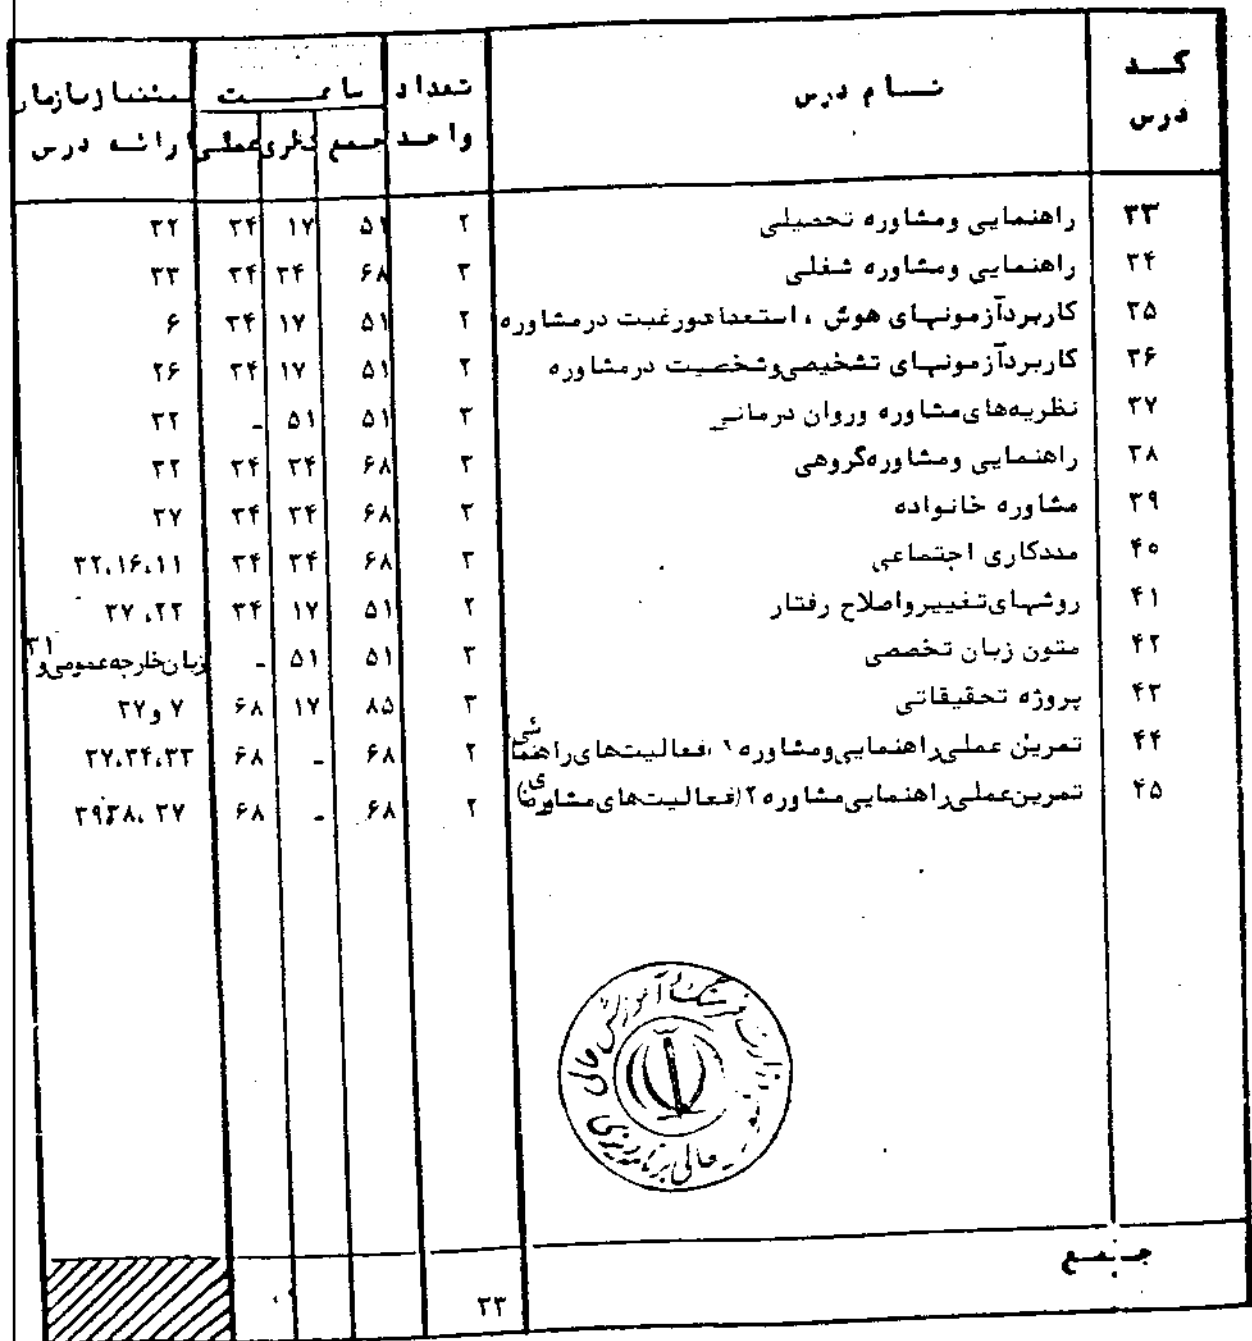 کد درس نام درس تعداد واحد ساعت پیشنیاز یا زمان ارائه درس
جمع نظری عملی
۳۳ راهنمایی ومشاوره تحصیلی ۲ ۵۱ ۱۷ ۳۴ ۳۲
۳۴ راهنمایی ومشاوره شغلی ۳ ۶۸ ۳۴ ۳۴ ۳۳
۳۵ کاربردآزمونهای هوش ، استعدادورغبت درمشاوره ۲ ۵۱ ۱۷ ۳۴ ۶
۳۶ کاربردآزمونهای تشخیصی‌وشخصیت درمشاوره ۲ ۵۱ ۱۷ ۳۴ ۲۶
۳۷ نظریه‌های‌مشاوره وروان درمانی ۳ ۵۱ ۵۱ - ۳۲
۳۸ راهنمایی ومشاوره‌گروهی ۳ ۶۸ ۳۴ ۳۴ ۳۲
۳۹ مشاوره خانواده ۳ ۶۸ ۳۴ ۳۴ ۳۷
۴۰ مددکاری اجتماعی ۳ ۶۸ ۳۴ ۳۴ ۳۲،۱۶،۱۱
۴۱ روشهای‌تغییرواصلاح رفتار ۲ ۵۱ ۱۷ ۳۴ ۳۷ ،۲۲
۴۲ متون زبان تخصصی ۳ ۵۱ ۵۱ - زبان‌خارجه‌عمومی‌و ۳۱
۴۳ پروژه تحقیقاتی ۳ ۸۵ ۱۷ ۶۸ ۷ و۳۷
۴۴ تمرین عملی‌راهنمایی‌ومشاوره ۱ ،فعالیت‌های‌راهنمائی ۲ ۶۸ - ۶۸ ۳۷،۳۴،۳۳
۴۵ تمرین‌عملی‌راهنمایی‌مشاوره ۲(فعالیت‌های‌مشاوره‌ای) ۲ ۶۸ - ۶۸ ۳۷ ،۳۸و۳۹
وزارت فرهنگ و آموزش عالی
عالی برنامه‌ریزی
جمع ۳۳